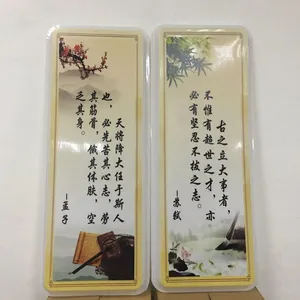 天将降大任于斯人
也，必先苦其心志，劳
其筋骨，饿其体肤，空
乏其身。
—孟子
古之立大事者，
不惟有超世之才，亦
必有坚忍不拔之志。
—苏轼